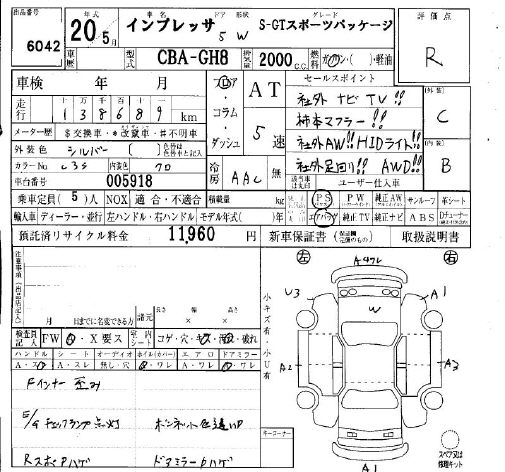 出品番号 年式 車名 ドア 形状 グレード 評価点
6042 20年5月 インプレッサ 5 W S-GTスポーツパッケージ R
車歴 型式 CBA-GH8 排気量 2000c.c. 燃料 ガソリン・( )・軽油
車検 年 月 フロア・コラム・ダッシュ AT 5速 セールスポイント
走行 十万 万 千 百 十 一
138689 km
社外 ナビ TV!!
柿本マフラー!!
社外AW!! HIDライト!!
社外足回り!! AWD!!
外装 C
内装 B
メーター歴 $交換車・*改竄車・#不明車
外装色 シルバー ( )
カラーNo 内装色
車台番号 005918
冷房 AAC 無
ユーザー仕入車
乗車定員( 5 )人 NOX 適合・不適合 積載量 kg PS PW 純正AW サンルーフ 革シート
輸入車 ディーラー・並行 左ハンドル・右ハンドル モデル年式( ) エアバッグ 純正TV 純正ナビ ABS Dチューナー
預託済リサイクル料金 11,960円 新車保証書 取扱説明書
注意事項(出品店記入)
月 日までに名変できる方 諸元 長さ 幅 高さ
検査員記入 FW X要ス 室内シート コゲ・穴・キズ・汚れ・破れ
ハンドル シート オーディオ ホイル(カバー) エアロ ドアミラー
A・スレ A・スレ 無し・穴 ワレ A・ワレ ワレ
Fインナー 歪み
E/gチェックランプ点灯 ボンネット色違い
ドアミラー
小キズ有・小U有
キーコーナー
左 右
U3 A1
W
A2 A3
A1
スペア又は修理キット